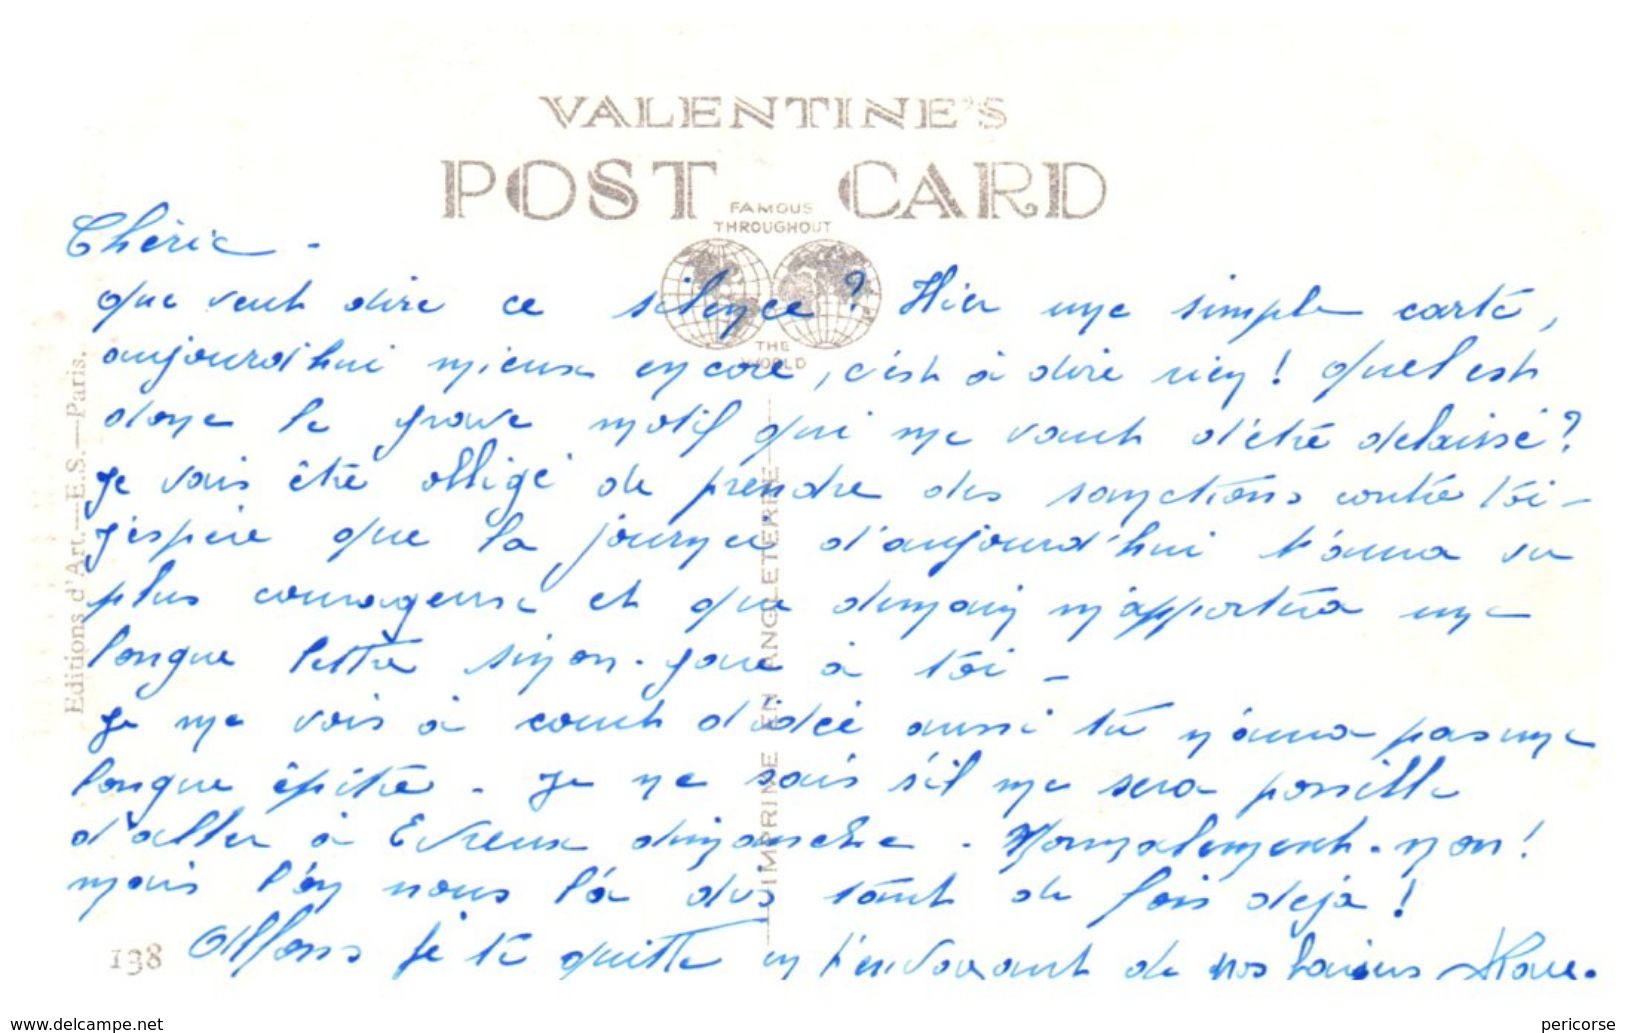 VALENTINE'S
POST CARD
FAMOUS
THROUGHOUT
THE
WORLD
Chérie -
que veut dire ce silence ? Hier une simple carte,
aujourd'hui mieux encore, c'est à dire rien ! Quel est
donc le grave motif qui me vaut d'être delaissé ?
Je vais être obligé de prendre des sanctions contre toi -
J'espère que la journée d'aujourd'hui t'aura vu
plus courageuse et que demain m'apportera une
longue lettre sinon gare à toi -
Je me vois à court d'idée aussi tu n'auras pas une
longue épitre - Je ne sais s'il me sera possible
d'aller à Evreux dimanche - Normalement - non !
mais l'on nous l'a dit tant de fois dejà !
Allons je te quitte en t'envoyant de bos baisers
Editions d'Art.—E.S.—Paris.
IMPRIME EN ANGLETERRE
138
www.delcampe.net
pericorse